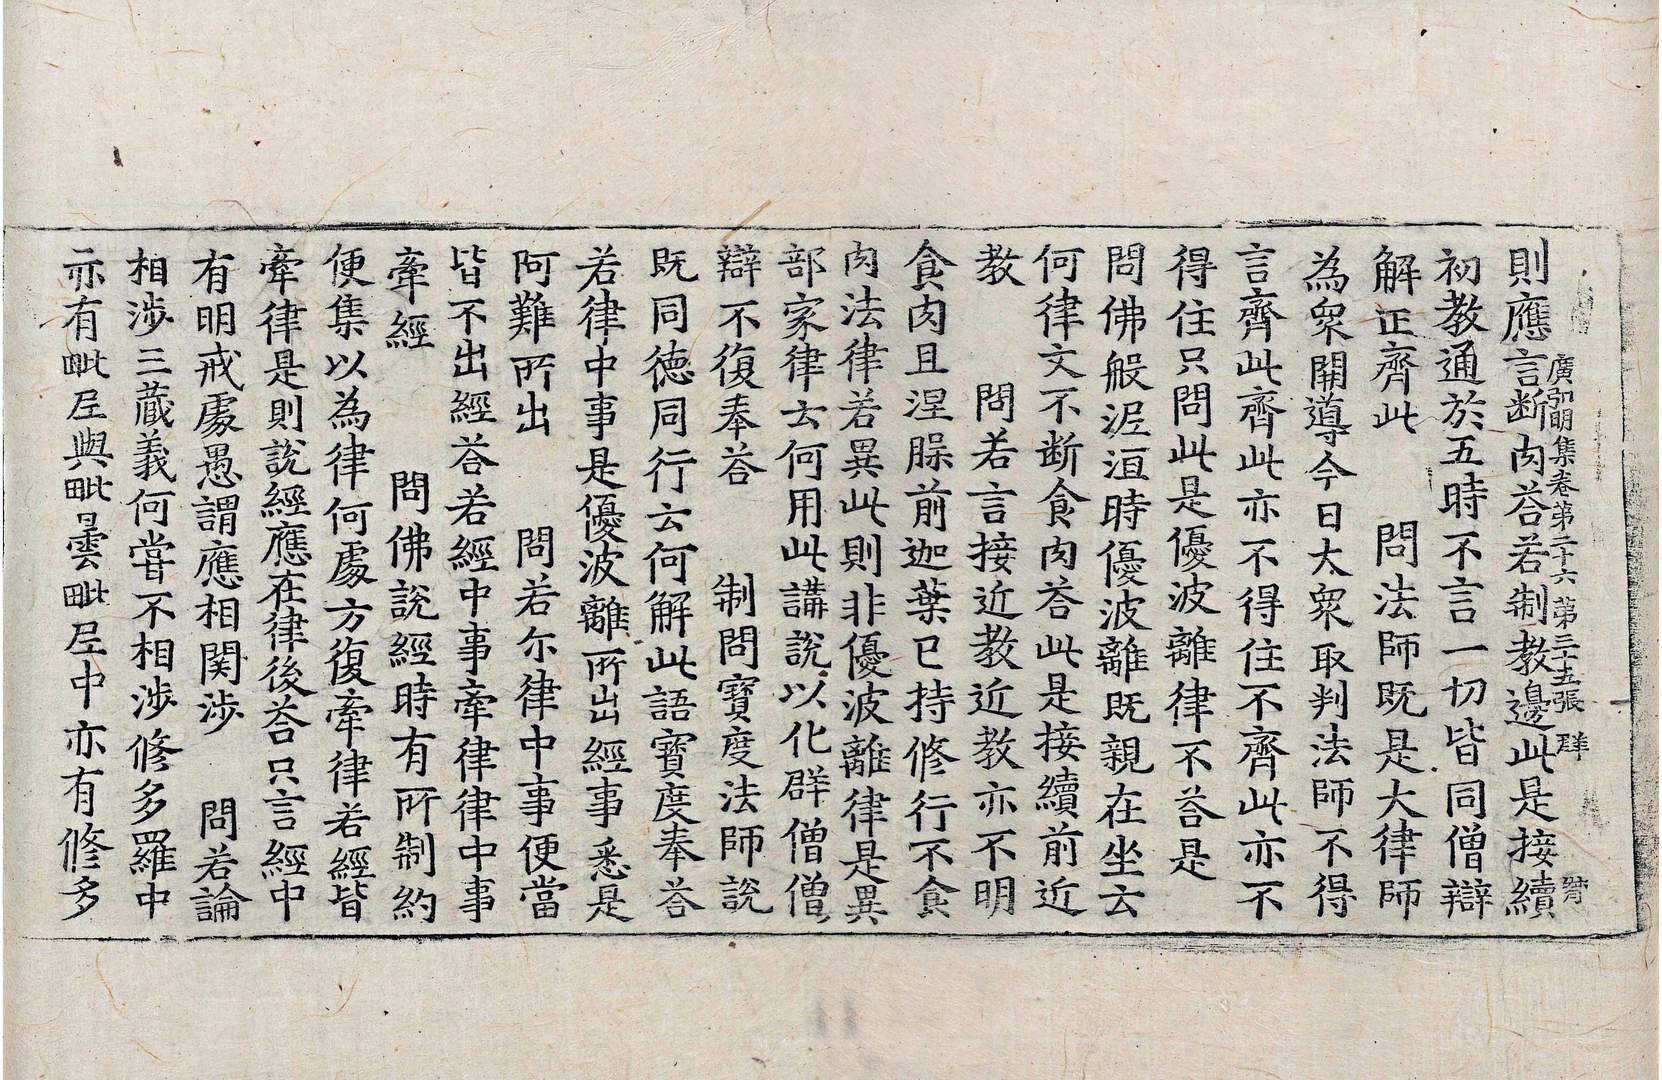 廣弘明集卷第二十六 第三十五張 群
則應言断肉荅若制教邊此是接續
初教通於五時不言一切皆同僧辯
解正齊此 問法師既是大律師
為衆開導今日大衆取判法師不得
言齊此齊此亦不得住不齊此亦不
得住只問此是優波離律不荅是
問佛般泥洹時優波離既親在坐云
何律文不断食肉荅此是接續前近
教 問若言接近教近教亦不明
食肉且涅槃前迦葉已持修行不食
肉法律若異此則非優波離律是異
部家律云何用此講說以化群僧僧
辯不復奉荅 制問寶度法師說
既同德同行云何解此語寶度奉荅
若律中事是優波離所出經事悉是
阿難所出 問若尒律中事便當
皆不出經荅若經中事牽律律中事
牽經 問佛說經時有所制約
便集以為律何處方復牽律若經皆
牽律是則說經應在律後荅只言經中
有明戒處愚謂應相関涉 問若論
相涉三藏義何嘗不相涉修多羅中
亦有毗尼與毗曇毗尼中亦有修多